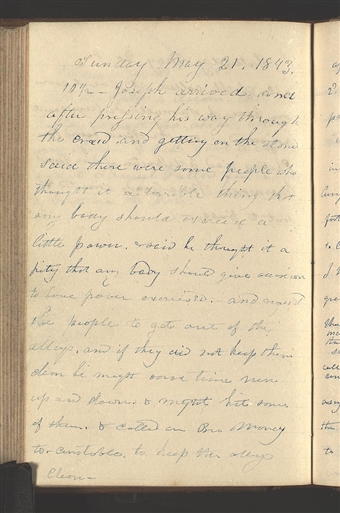 Sunday May 21. 1843.
10½ - Joseph arrived and
after pressing his way through
the crowd and getting on the stand
said there were some people who
thought it a terrible thing that
any body should exercise a
little power. & said he thought it a
pity that any body should give occasion
to have power exercised. and requested
the people to get out of the
alleys. and if they did not keep them
clear he might some time run
up and down. & might hit some
of them. & called on Bro Morey
to constable. to keep the alleys
Clear-